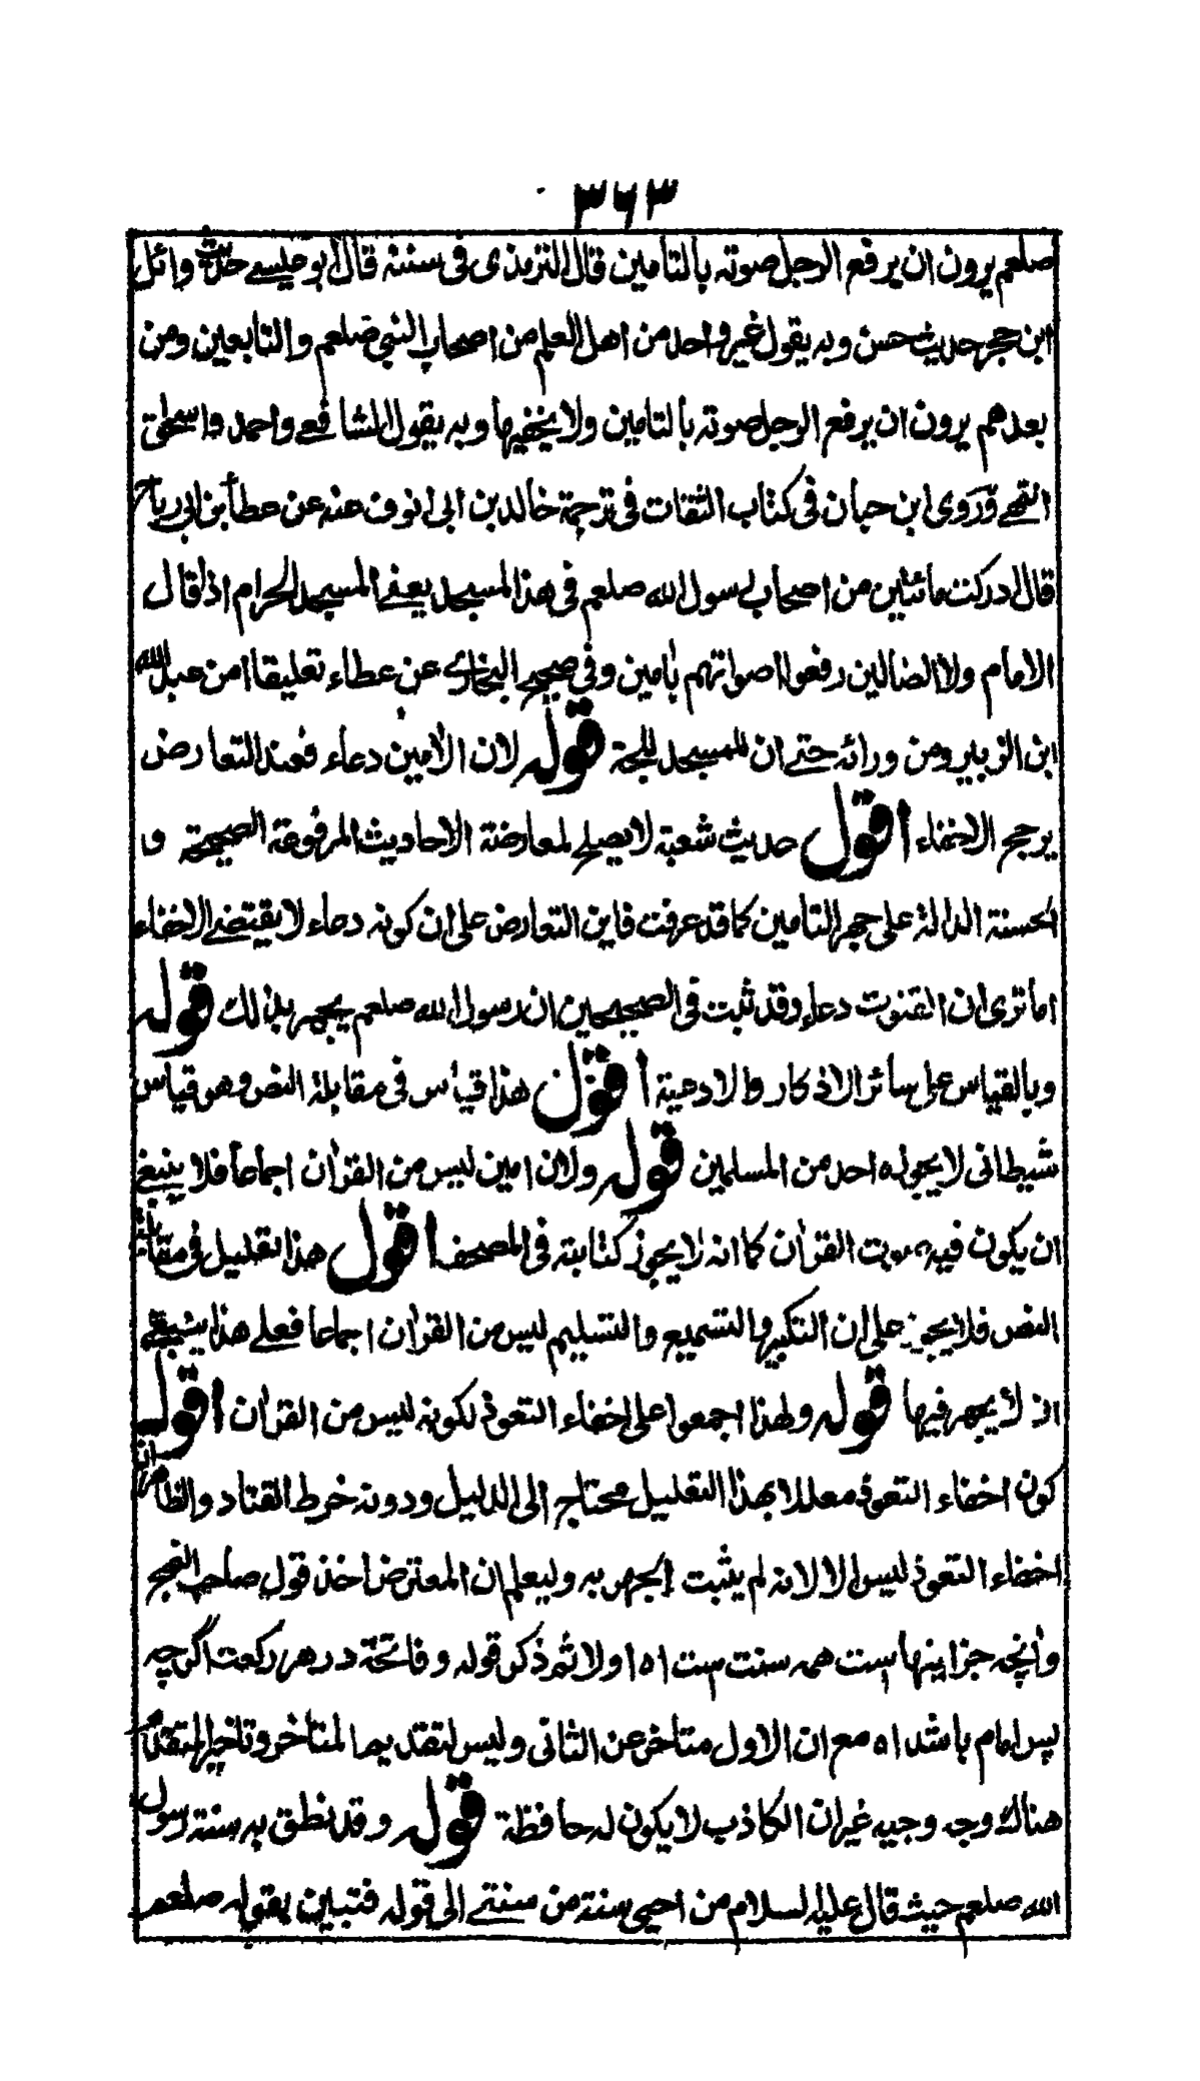 ۳۶۳
صلعم يرون ان يرفع الرجل صوته بالتامين قال الترمذى فى سننه قال ابو عيسے حديث وائل
ابن حجر حديث حسن وبه يقول غير واحد من اهل العلم من اصحاب النبي صلعم والتابعين ومن
بعدهم يرون ان يرفع الرجل صوته بالتامين ولا يخفيها وبه يقول الشافعے واحمد واسحٰق
انتهے وروى ابن حبان فى كتاب الثقات فى ترجمة خالد بن ابى انوف عنه عن عطأ بن ابى رباح
قال ادركت مائتين من اصحاب رسول الله صلعم فى هذا المسجد يعنے المسجد الحرام اذا قال
الامام ولا الضالين رفعوا اصواتهم بٰامين وفى صحيح البخارے عن عطاء تعليقا امن عبد الله
ابن الزبير ومن ورائه حتے ان للمسجد للجة قوله لان الاٰمين دعاء فعند التعارض
يرجح الاخفاء اقول حديث شعبة لا يصلح لمعارضة الاحاديث المرفوعة الصحيحة و
الحسنة الدالة على جهر التامين كما قد عرفت فاين التعارض على ان كونه دعاء لا يقتضے الاخفاء
اما ترى ان القنوت دعاء وقد ثبت فى الصحيحين ان رسول الله صلعم يجهر بذلك قوله
وبالقياس على سائر الاذكار والادعية اقول هذا قياس فى مقابلة النص وهو قياس
شيطانى لا يجوزه احد من المسلمين قوله ولان امين ليس من القراٰن اجماعا فلا ينبغے
ان يكون فيه صوت القراٰن كما انه لا يجوز كتابته فى المصحف اقول هذا تعليل فى مقابلة
النص فلا يجوز على ان التكبير والتسميع والتسليم ليس من القراٰن اجماعا فعلے هذا ينبغے
ان لا يجهر فيها قوله ولهذا اجمعوا على اخفاء التعوذ لكونه ليس من القراٰن اقول
كون اخفاء التعوذ معللا بهذا التعليل محتاج الى الدليل ودونه خرط القتاد والظاهر ان
اخفاء التعوذ ليس الا لانه لم يثبت الجهر به وليعلم ان المعترض اخذ قول صاحب النهج
وانچه جز اينها ست همه سنت ست اه اولا ثم ذكر قوله وفاتحة در هر ركعت اگرچه
پس امام باشد اه مع ان الاول متاخر عن الثانى وليس لتقديم المتأخر وتاخير المتقدم
هناك وجه وجيه غير ان الكاذب لا يكون له حافظة قوله وقد نطق به سنة رسول
الله صلعم حيث قال عليه السلام من احيى سنة من سنتے الى قوله فتبين بقوله صلعم